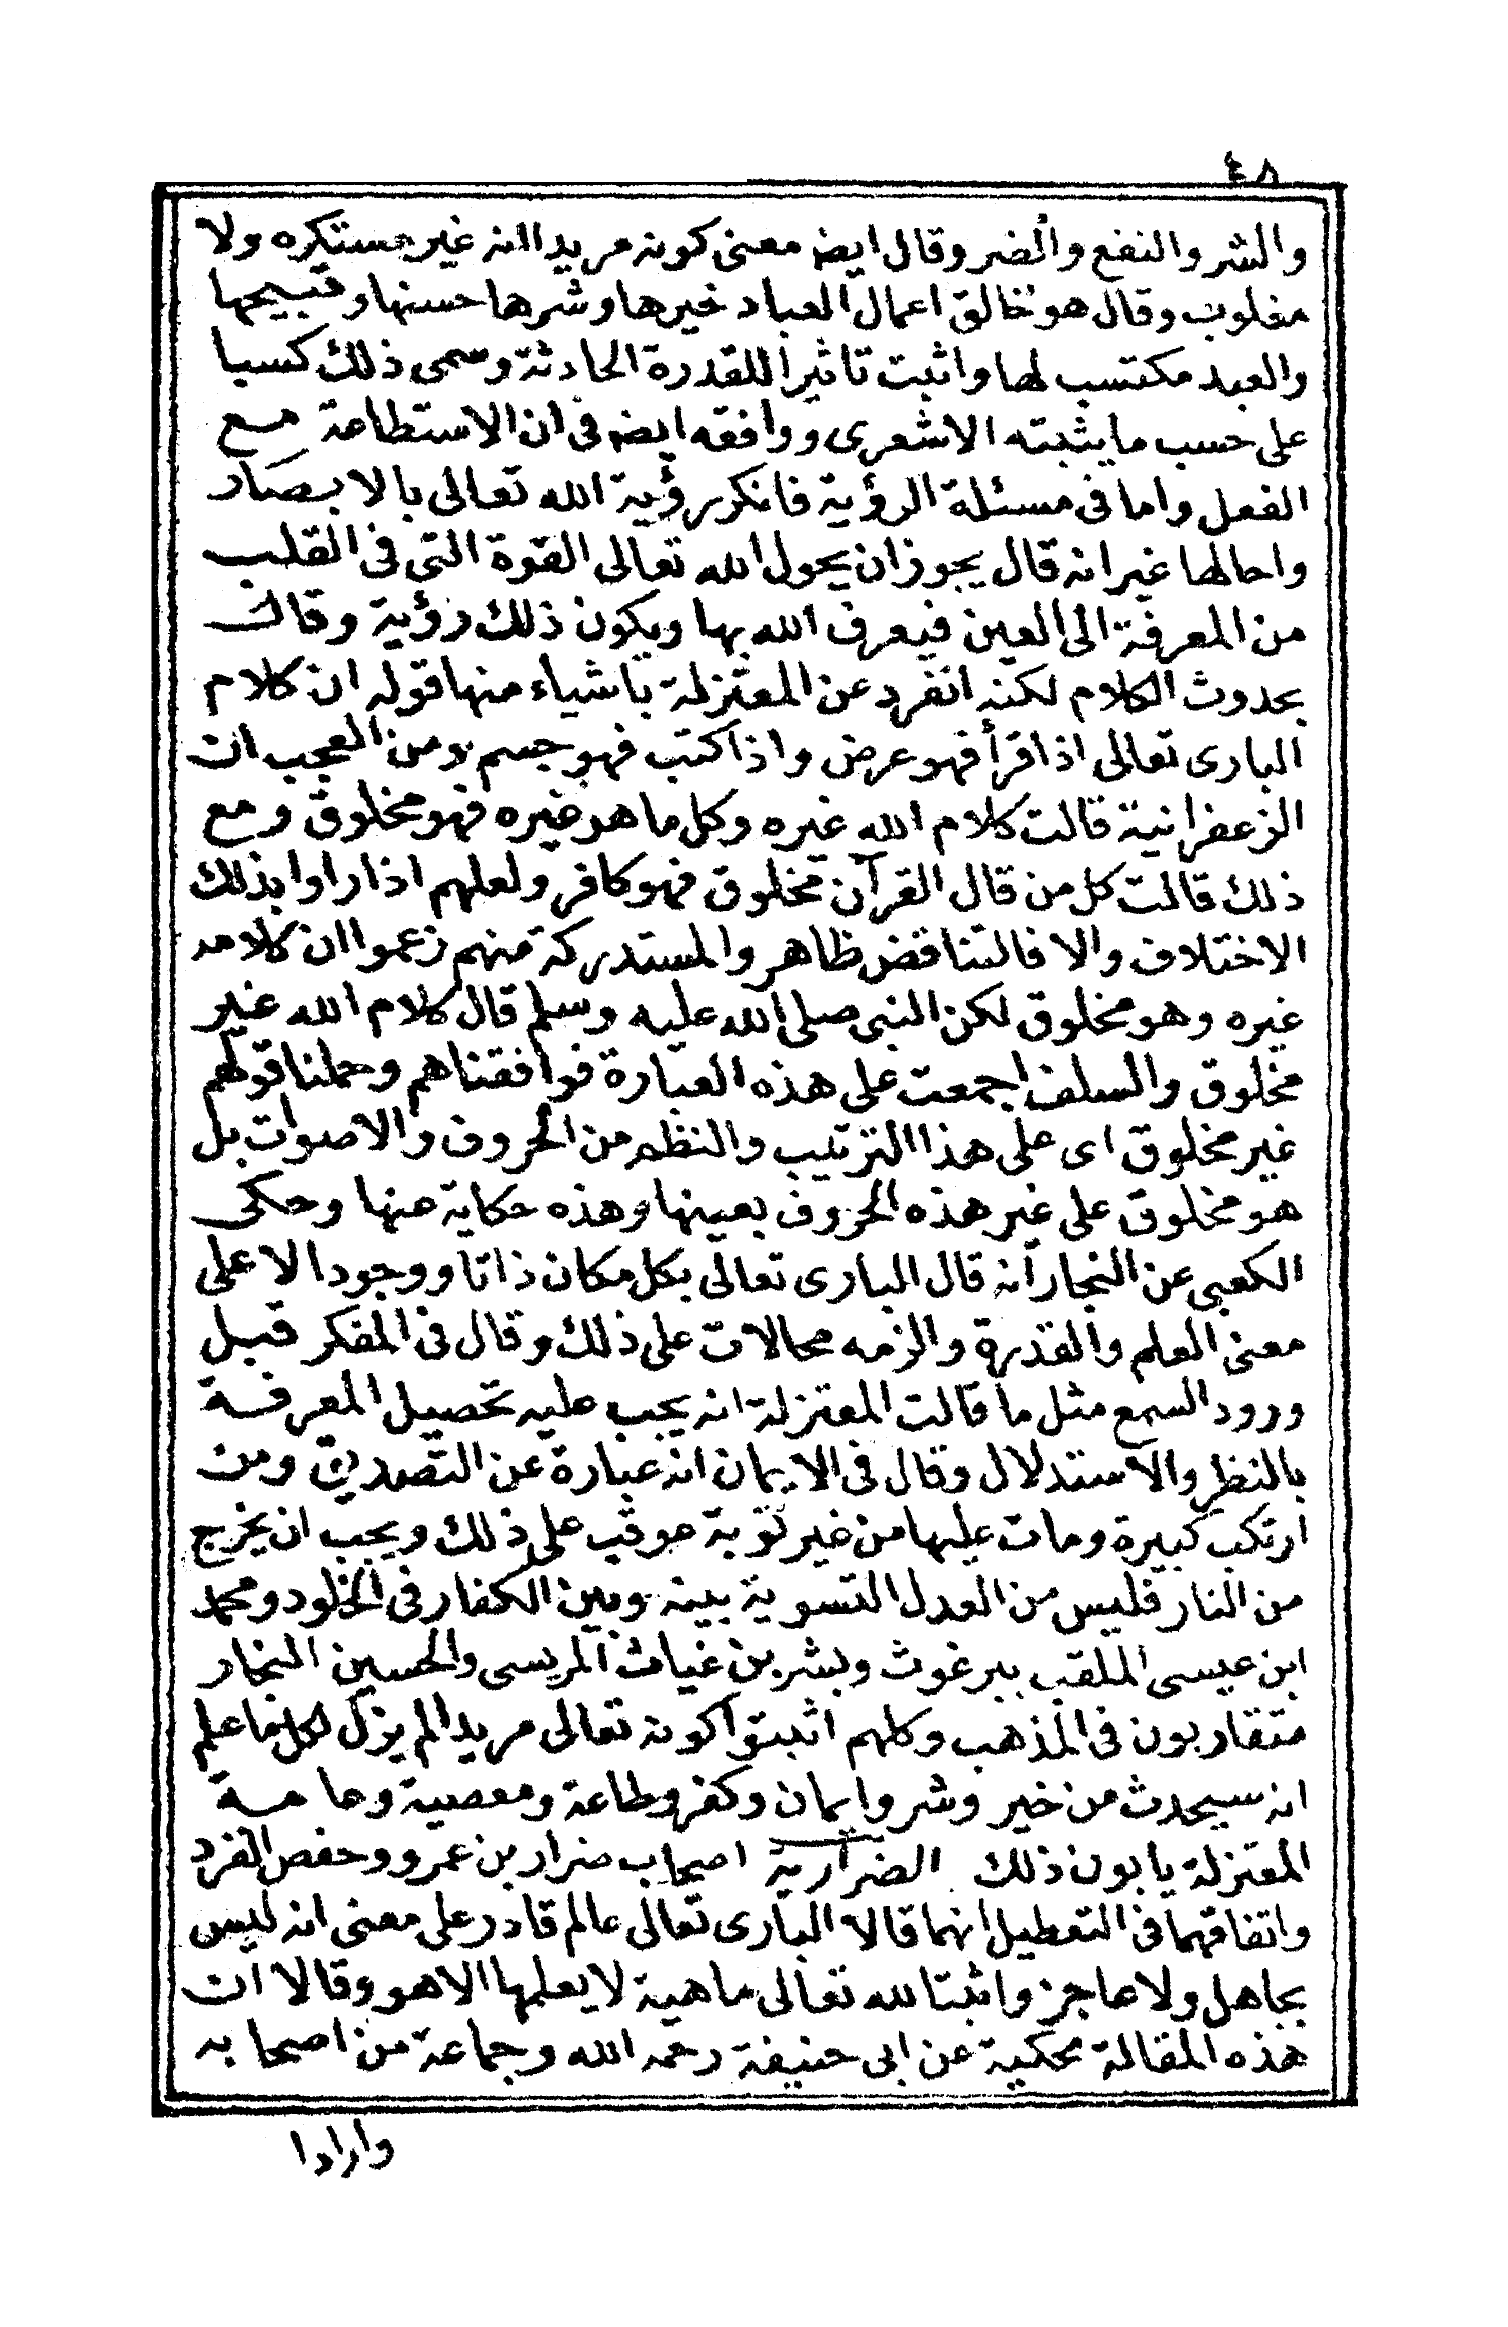 ٤٨
والشر والنفع والضر وقال ايض معنى كونه مريدا انه غير مستكره ولا
مغلوب وقال هو خالق اعمال العباد خيرها وشرها حسنها وقبيحها
والعبد مكتسب لها واثبت تاثيرا للقدرة الحادثة وسمى ذلك كسبا
على حسب ما يثبته الاشعرى ووافقه ايض فى ان الاستطاعة مع
الفعل واما فى مسئلة الرؤية فانكر رؤية الله تعالى بالابصار
واحالها غير انه قال يجوز ان يحول الله تعالى القوة التى فى القلب
من المعرفة الى العين فيعرف الله بها ويكون ذلك رؤية وقال
بحدوث الكلام لكنه انفرد عن المعتزلة باشياء منها قوله ان كلام
البارى تعالى اذا قرأ فهو عرض واذا كتب فهو جسم ومن العجب ان
الزعفرانية قالت كلام الله غيره وكل ما هو غيره فهو مخلوق ومع
ذلك قالت كل من قال القرآن مخلوق فهو كافر ولعلهم اذا راوا بذلك
الاختلاف والا فالتناقض ظاهر والمستدركة منهم زعموا ان كلامه
غيره وهو مخلوق لكن النبى صلى الله عليه وسلم قال كلام الله غير
مخلوق والسلف اجمعت على هذه العبارة فوافقناهم وحملنا قولهم
غير مخلوق اى على هذا الترتيب والنظم من الحروف والاصوات بل
هو مخلوق على غير هذه الحروف بعينها وهذه حكاية عنها وحكى
الكعبى عن النجار انه قال البارى تعالى بكل مكان ذاتا ووجودا لا على
معنى العلم والقدرة والزمه محالات على ذلك وقال فى المفكر قبل
ورود السمع مثل ما قالت المعتزلة انه يجب عليه تحصيل المعرفة
بالنظر والاستدلال وقال فى الايمان انه عبارة عن التصديق ومن
ارتكب كبيرة ومات عليها من غير توبة عوقب على ذلك ويجب ان يخرج
من النار فليس من العدل التسوية بينه وبين الكفار فى الخلود ومحمد
ابن عيسى الملقب ببرغوث وبشر بن غياث المريسى والحسين النجار
متقاربون فى المذهب وكلهم اثبتوا كونه تعالى مريدا لم يزل لكل ما علم
انه سيحدث من خير وشر وايمان وكفر وطاعة ومعصية وعامة
المعتزلة يابون ذلك الضرارية اصحاب ضرار بن عمرو وحفص الفرد
واتفاقهما فى التعطيل انهما قالا البارى تعالى عالم قادر على معنى انه ليس
بجاهل ولا عاجز واثبتا لله تعالى ماهية لا يعلمها الا هو وقالا ان
هذه المقالة محكية عن ابى حنيفة رحمه الله وجماعة من اصحابه
وارادا